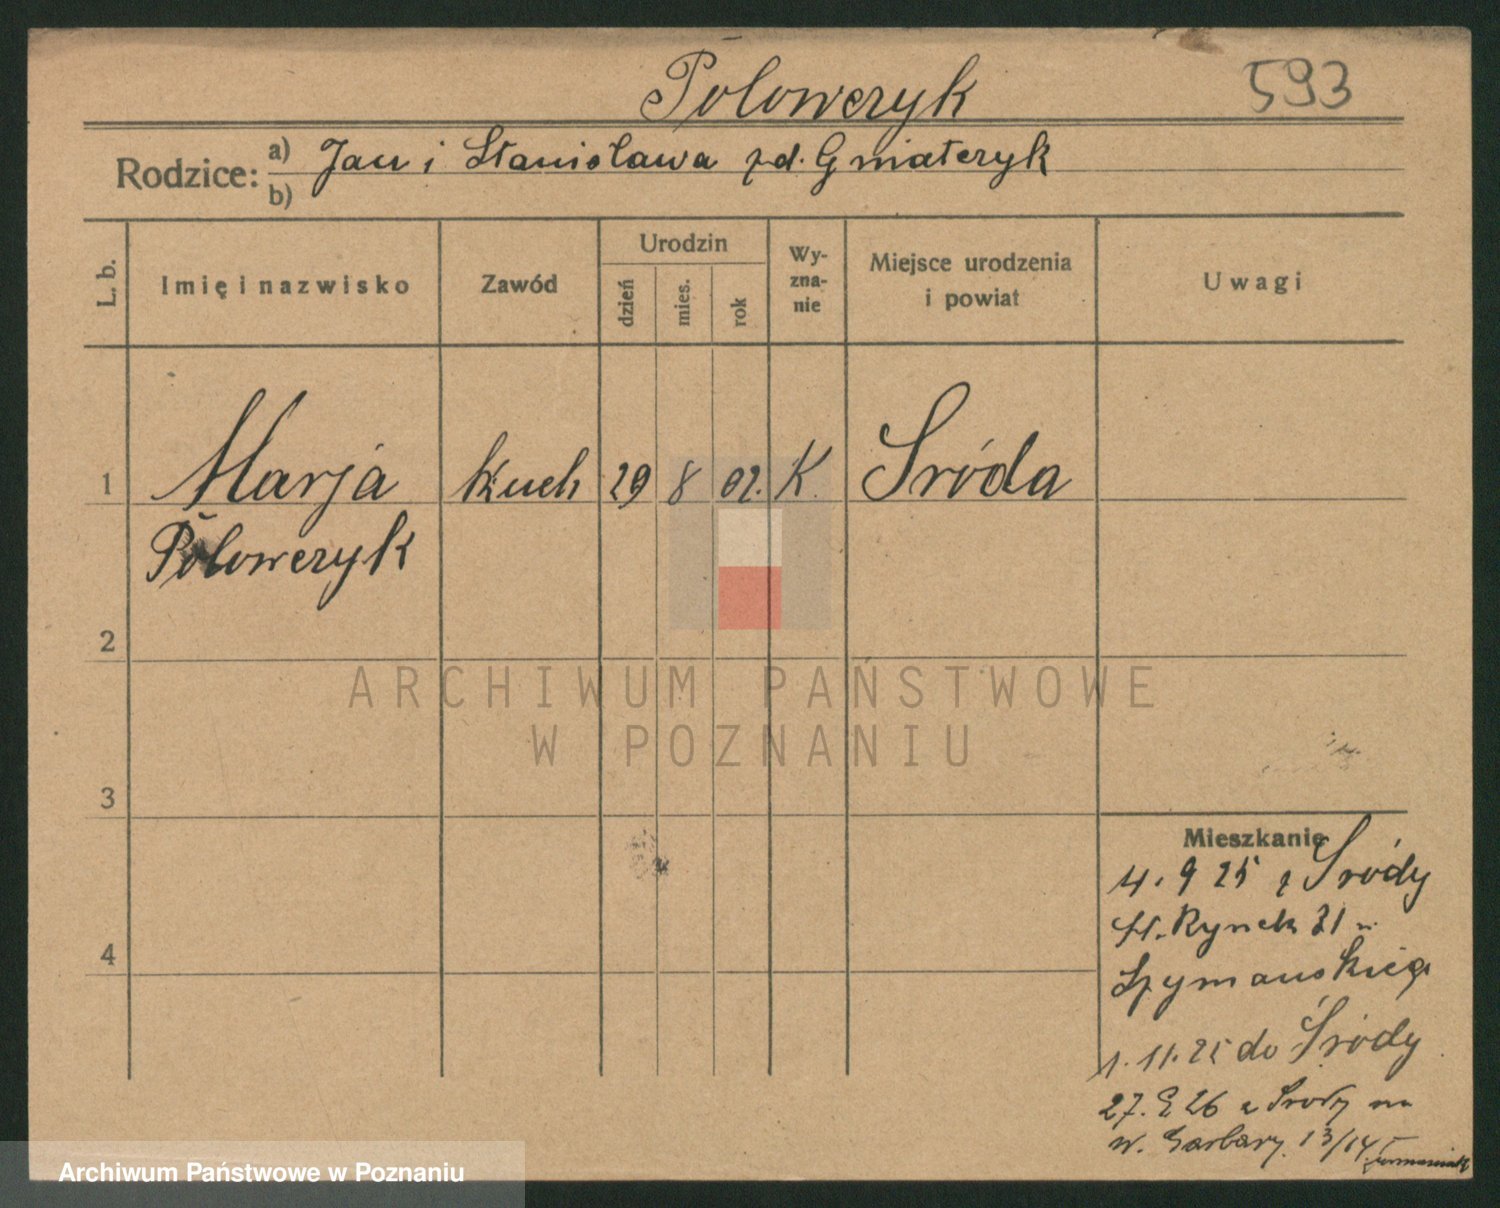 Poloweryk 593
Rodzice: a) Jan i Stanisława zd. Gmiateryk
b)
L. b. Imię i nazwisko Zawód Urodzin dzień mies. rok Wyznanie Miejsce urodzenia i powiat Uwagi
1 Marja Kuch 29 8 02. K. Środa
Poloweryk
2
ARCHIWUM PAŃSTWOWE
W POZNANIU
3
Mieszkanie
4. 9 25 z Środy
St. Rynek 31
4
Szymańskiego
1. 11. 25 do Środy
27. 26 z Środy na
w. Garbary 13/14
Archiwum Państwowe w Poznaniu